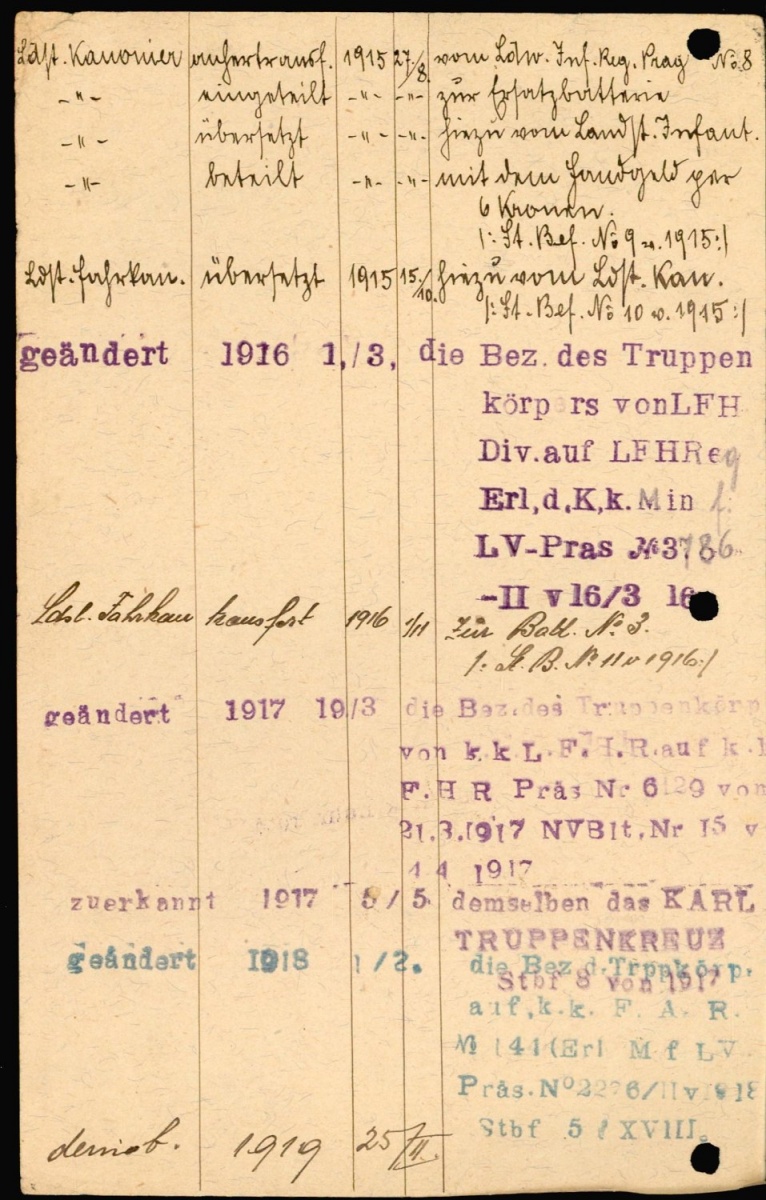 Ldst. Kanonier anhertransf. 1915 27./8. vom Ldw. Inf. Reg. Prag No 8
-"- eingeteilt -"- -"- zur Ersatzbatterie
-"- übersetzt -"- -"- hiezu vom Landst. Infant.
-"- beteilt -"- -"- mit dem Handgeld per
6 Kronen.
/: St. Bef. No 9 v. 1915 :/
Ldst. Fahrkan. übersetzt 1915 15./10. hiezu vom Ldst. Kan.
/: St. Bef. No 10 v. 1915 :/
geändert 1916 1,/3, die Bez. des Truppen
körpers von LFH
Div. auf LFHReg
Erl,d,K,k. Min f:
LV-Pras No 3786
-II v 16/3 16
Ldst. Fahrkan transfert 1916 1/11 Zur Batt. No 3.
/: St. B. No 11 v 1916 :/
geändert 1917 19/3 die Bez. des Truppenkörp
von k.k L.F.H.R. auf k.k
F.H R Präs Nr 6129 von
21.3.1917 NVBlt, Nr 15 v
4 4 1917
zuerkannt 1917 5/5. demselben das KARL
TRUPPENKREUZ
geändert 1918 1/2. die Bez d. Trppkörp.
Stbf 8 von 1917
auf, k.k. F. A. R.
No 141 (Erl M f LV
Präs. No 2276/II v 1918
Stbf 5 XVIII.
demob. 1919 25/II.